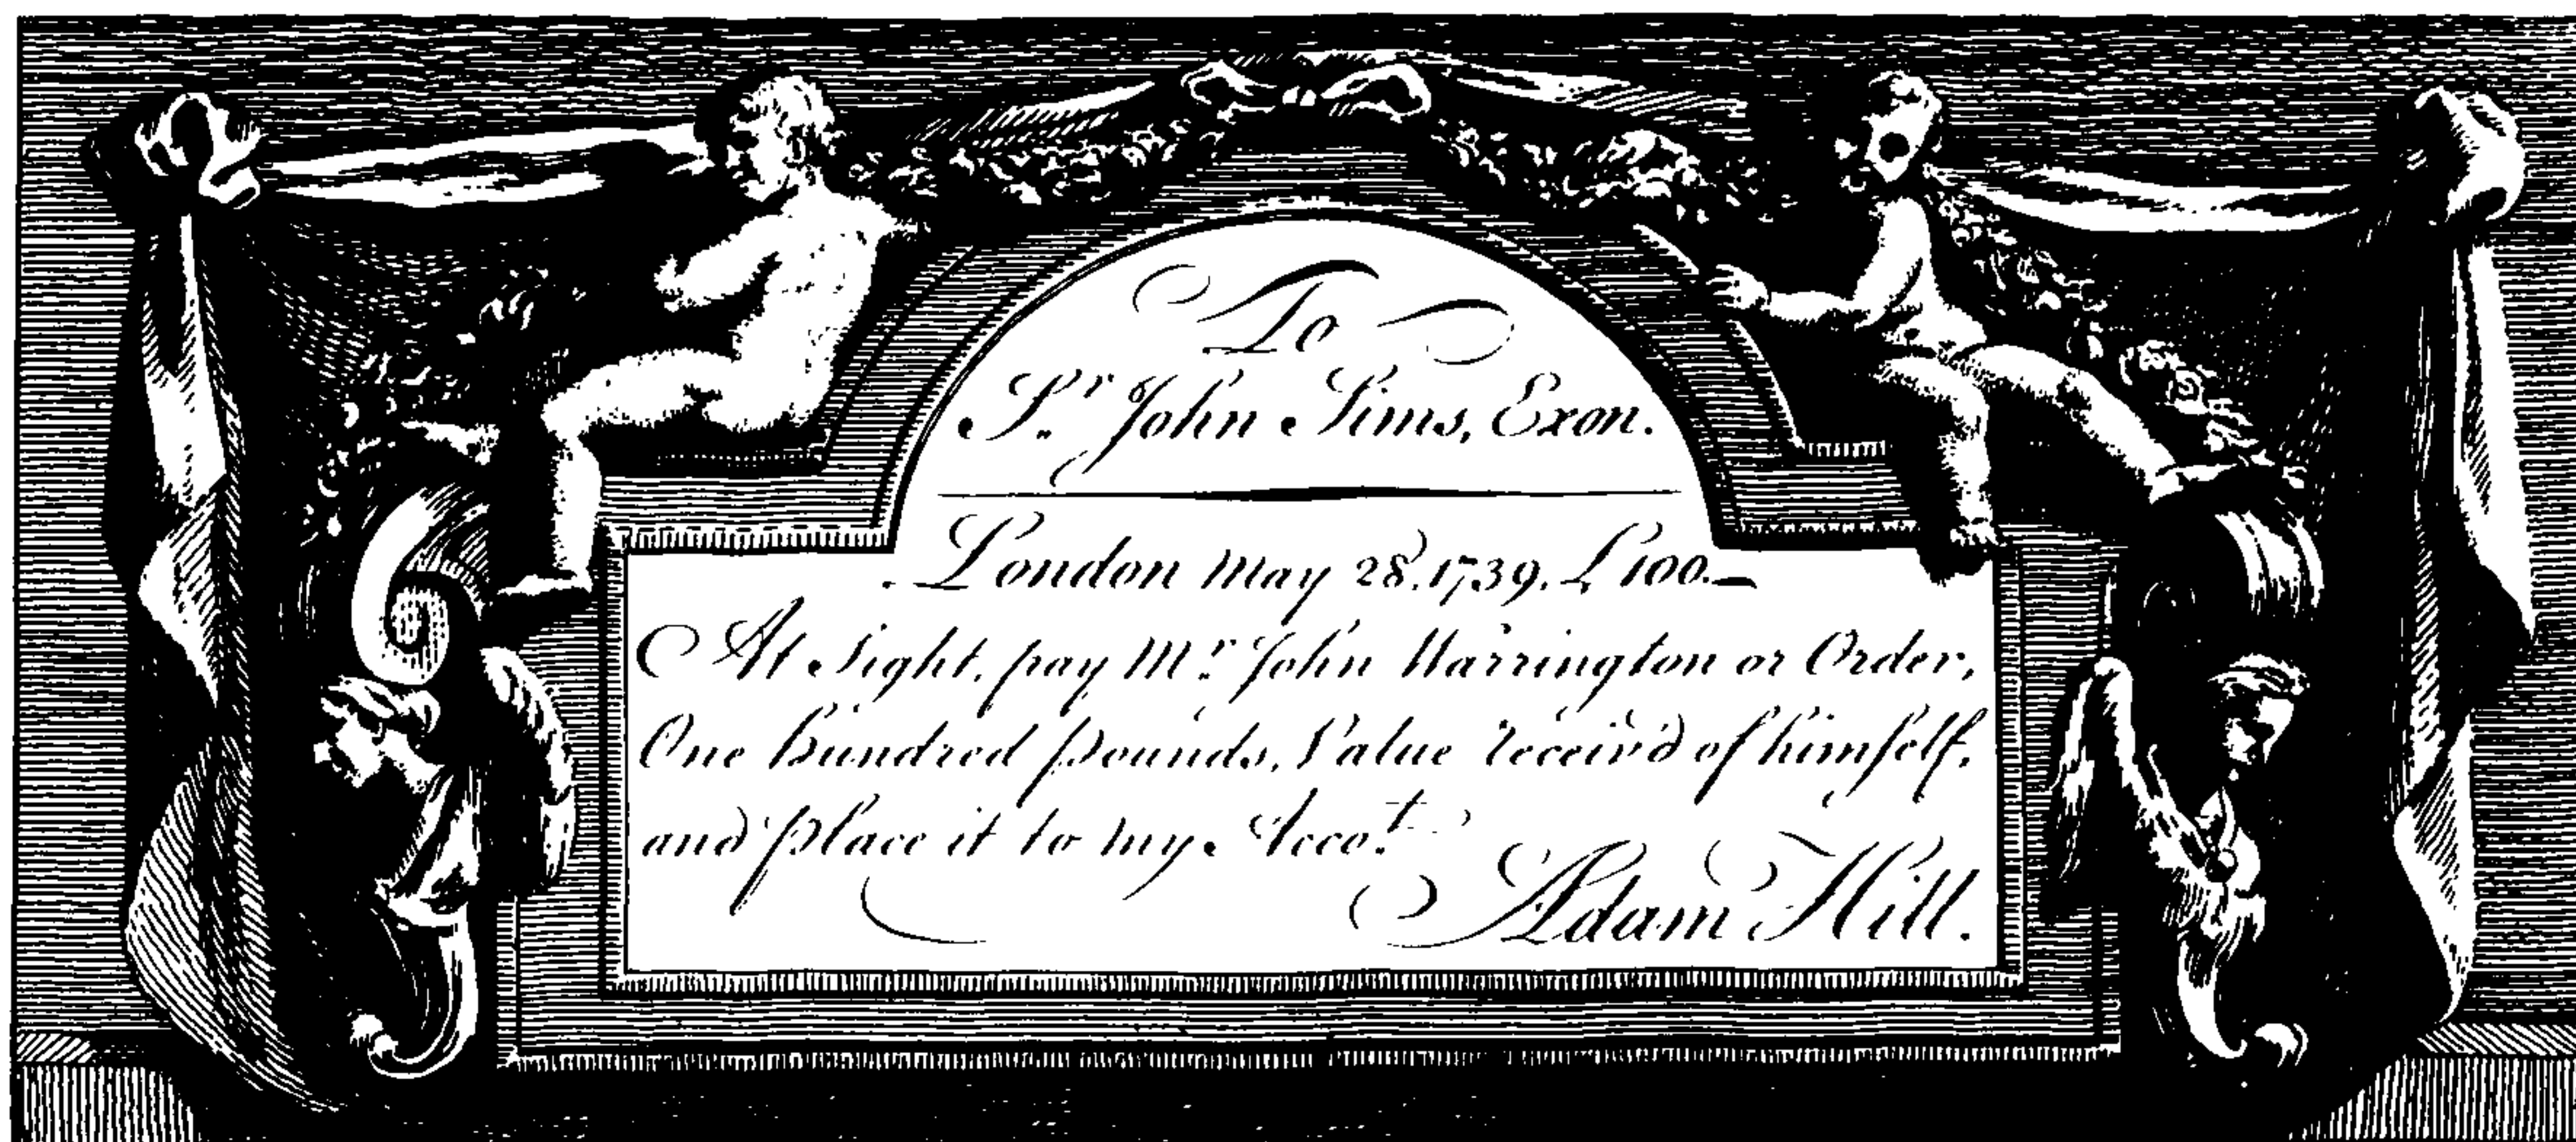 To
Sr. John Sims, Exon.
London May 28. 1739. £100.—
At Sight, pay Mr. John Warrington or Order,
One hundred pounds, Value receiv'd of himſelf,
and place it to my Accot.
Adam Hill.